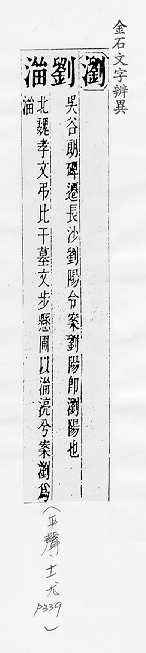 金石文字辨異
瀏
劉 吳谷朗碑遷長沙劉陽令案劉陽卽瀏陽也
湽 北魏孝文弔比干墓文步懸圃以湽湸兮案瀏爲
湽
(平聲、十一尤 P339)